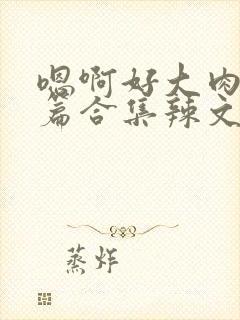 嗯啊好大肉
篇合集辣文
蒸炸